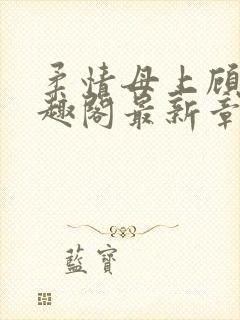 柔情母上顾
趣阁最新章
藍寶